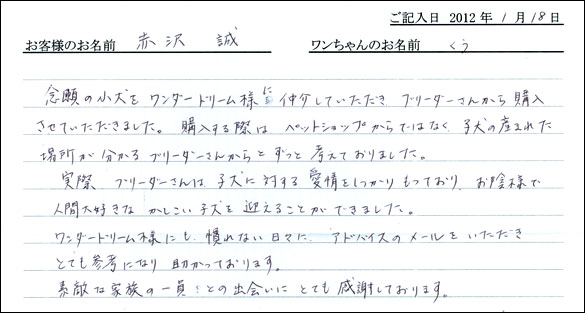 ご記入日 2012年 1月 18日
お客様のお名前 赤沢 誠 ワンちゃんのお名前 くう
念願の小犬をワンダードリーム様に仲介していただき ブリーダーさんから購入
させていただきました。購入する際は ペットショップからではなく、子犬の産まれた
場所が分かるブリーダーさんからと ずっと考えておりました。
実際、ブリーダーさんは、子犬に対する愛情をしっかりもっており、お陰様で
人間大好きな かしこい子犬を 迎えることができました。
ワンダードリーム様にも、慣れない日々に、アドバイスのメールをいただき
とても参考になり 助かっております。
素敵な家族の一員との出会いに とても感謝しております。